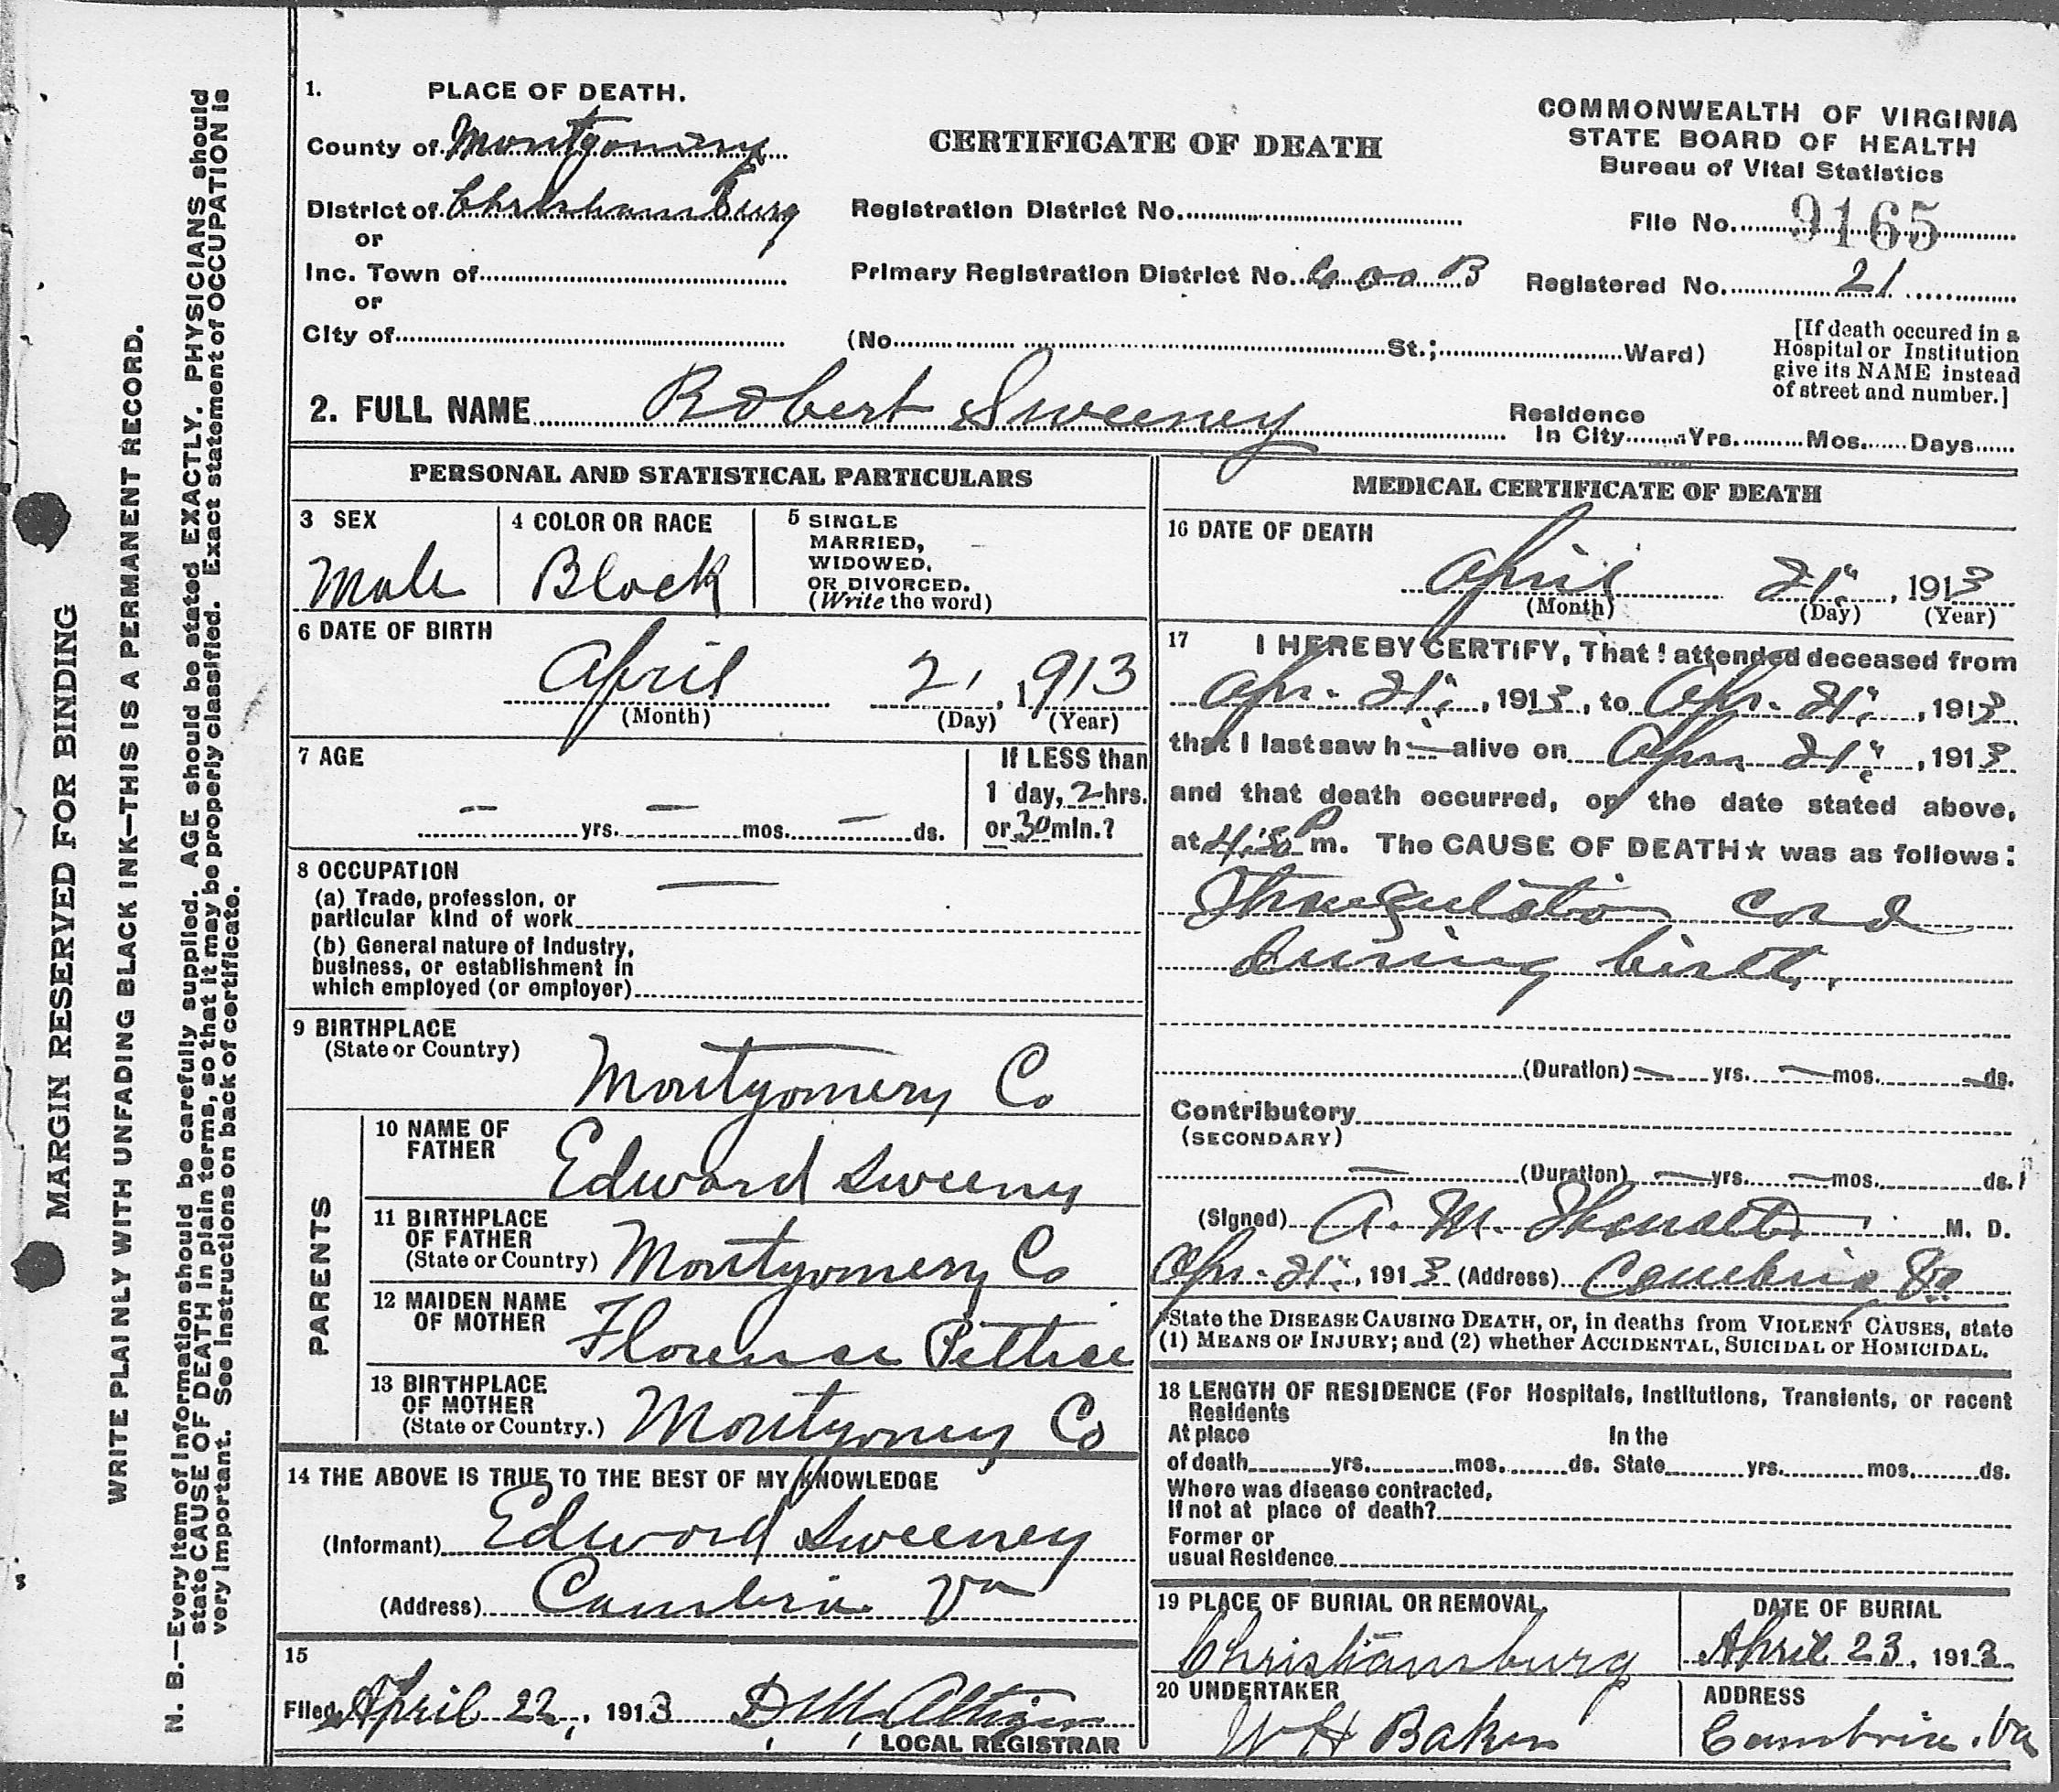 MARGIN RESERVED FOR BINDING
WRITE PLAINLY WITH UNFADING BLACK INK—THIS IS A PERMANENT RECORD.
N. B.—Every item of information should be carefully supplied. AGE should be stated EXACTLY. PHYSICIANS should
state CAUSE OF DEATH in plain terms, so that it may be properly classified. Exact statement of OCCUPATION is
very important. See instructions on back of certificate.
1. PLACE OF DEATH.
County of Montgomery
District of Christiansburg
or
Inc. Town of
or
City of
CERTIFICATE OF DEATH
Registration District No.
Primary Registration District No. 600 B
(No. St.; Ward)
COMMONWEALTH OF VIRGINIA
STATE BOARD OF HEALTH
Bureau of Vital Statistics
File No. 9165
Registered No. 21
[If death occured in a
Hospital or Institution
give its NAME instead
of street and number.]
2. FULL NAME Robert Sweeney
Residence
In City Yrs. Mos. Days
PERSONAL AND STATISTICAL PARTICULARS
3 SEX
Male
4 COLOR OR RACE
Black
5 SINGLE
MARRIED,
WIDOWED,
OR DIVORCED.
(Write the word)
6 DATE OF BIRTH
April 21, 1913
(Month) (Day) (Year)
7 AGE
— yrs. — mos. — ds.
If LESS than
1 day, 2 hrs.
or 30 min.?
8 OCCUPATION
(a) Trade, profession, or
particular kind of work —
(b) General nature of Industry,
business, or establishment in
which employed (or employer)
9 BIRTHPLACE
(State or Country)
Montgomery Co
PARENTS
10 NAME OF
FATHER
Edward Sweeney
11 BIRTHPLACE
OF FATHER
(State or Country)
Montgomery Co
12 MAIDEN NAME
OF MOTHER
Florence
13 BIRTHPLACE
OF MOTHER
(State or Country.)
Montgomery Co
14 THE ABOVE IS TRUE TO THE BEST OF MY KNOWLEDGE
(Informant) Edward Sweeney
(Address) Cambria Va
15
Filed April 22, 1913 D M Altizer
LOCAL REGISTRAR
MEDICAL CERTIFICATE OF DEATH
16 DATE OF DEATH
April 21, 1913
(Month) (Day) (Year)
17 I HEREBY CERTIFY, That I attended deceased from
Apr. 21, 1913, to Apr. 21, 1913
that I last saw h— alive on Apr. 21, 1913
and that death occurred, on the date stated above,
at 4:30 P m. The CAUSE OF DEATH★ was as follows:
Strangulation cord
during birth.
(Duration) — yrs. — mos. — ds.
Contributory
(SECONDARY)
— (Duration) — yrs. — mos. ds.
(Signed) A. M. M. D.
Apr. 21, 1913 (Address) Cambria Va
*State the DISEASE CAUSING DEATH, or, in deaths from VIOLENT CAUSES, state
(1) MEANS OF INJURY; and (2) whether ACCIDENTAL, SUICIDAL or HOMICIDAL.
18 LENGTH OF RESIDENCE (For Hospitals, Institutions, Transients, or recent
Residents
At place In the
of death yrs. mos. ds. State yrs. mos. ds.
Where was disease contracted,
If not at place of death?
Former or
usual Residence
19 PLACE OF BURIAL OR REMOVAL.
Christiansburg
DATE OF BURIAL
April 23, 1913
20 UNDERTAKER
W H Baker
ADDRESS
Cambria, Va